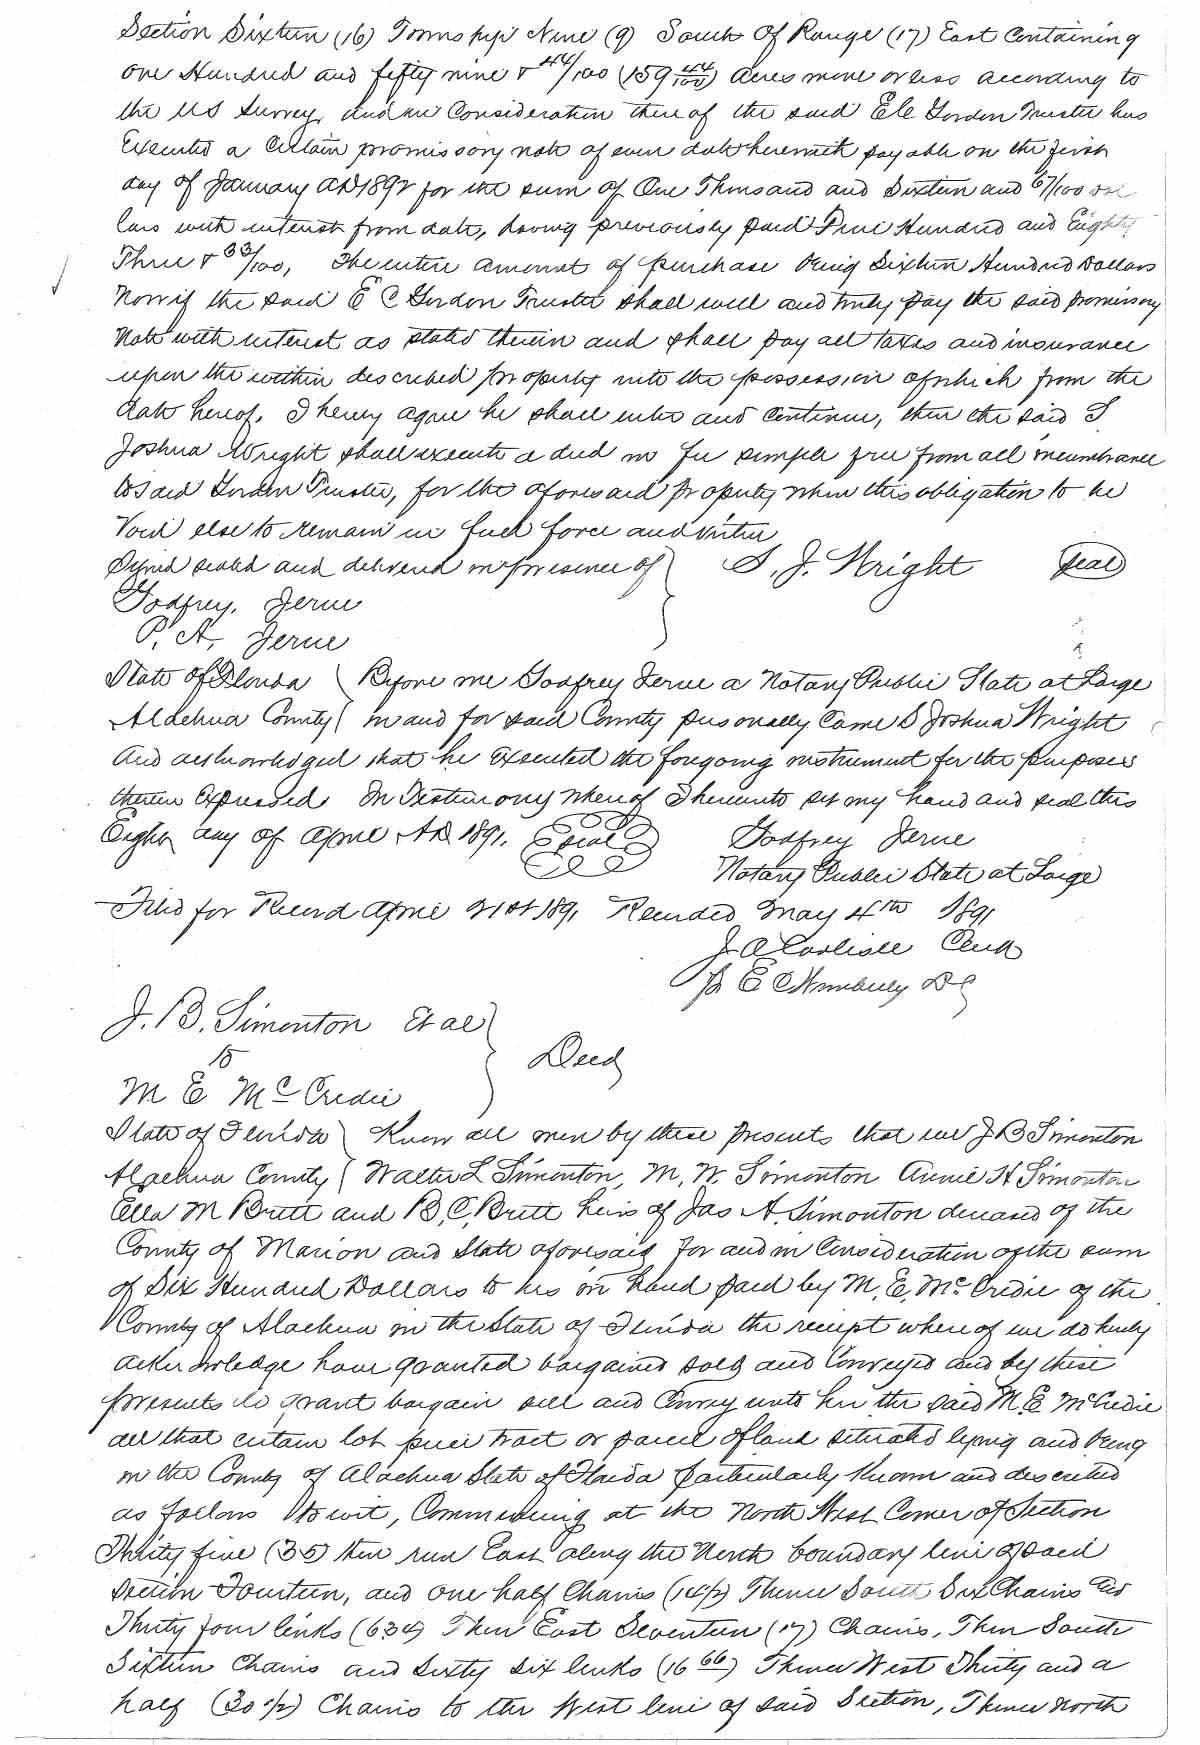 Section Sixteen (16) Township Nine (9) South Of Range (17) East Containing
one Hundred and fifty nine & 44/100 (159 44/100) acres more or less according to
the U S Survey, and in Consideration there of the said E C Gordon Trustee has
Executed a Certain promissory note of even date herewith payable on the first
day of January AD 1892 for the sum of One Thousand and Sixteen and 67/100 dol
lars with interest from date, having previously paid Five Hundred and Eighty
Three & 33/100, The entire amount of purchase being Sixteen Hundred Dollars
Now if the said E C Gordon Trustee shall well and truly pay the said promissory
Note with interest as stated therein and shall pay all taxes and insurance
upon the within described property into the possession of which from the
date hereof, I hereby agree he shall enter and continue, then the said S
Joshua Wright shall execute a deed in fee simple free from all incumbrance
to said Gordon Trustee, for the aforesaid property when this obligation to be
Void else to remain in full force and virtue
Signed sealed and delivered in presence of } S. J. Wright Seal
Godfrey,
P. A,
State of Florida ( Before me Godfrey a Notary Public State at Large
Alachua County ( in and for said County personally Came S Joshua Wright
And acknowledged that he Executed the foregoing instrument for the purposes
therein Expressed. In Testimony Whereof I hereunto set my hand and seal this
Eight day of April AD 1891. Seal Godfrey
Notary Public State at Large
Filed for Record April 21st 1891 Recorded May 4th 1891
J A Carlisle Clerk
E C DC
J. B. Simonton Et al }
to } Deed
M E McCredie
State of Florida ) Know all men by these presents that we J B Simonton
Alachua County ( Walter L Simonton, M. W. Simonton Annie H Simonton
Ella M Britt and B. C. Britt heirs of Jas A. Simonton deceased of the
County of Marion and State aforesaid for and in Consideration of the sum
of Six Hundred Dollars to us in hand paid by M. E. McCredie of the
County of Alachua in the State of Florida the receipt where of we do hereby
acknowledge have granted bargained sold and Conveyed and by these
presents do grant bargain sell and Convey unto her the said M. E McCredie
all that certain lot piece tract or parcel of land situated lying and being
in the County of Alachua State of Florida particularly Known and described
as follows to wit, Commencing at the North West Corner of Section
Thirty five (35) then run East along the North boundary line of said
Section Fourteen, and one half Chains (14½) Thence South Six Chains and
Thirty four links (634) Then East Seventeen (17) Chains, Then South
Sixteen Chains and Sixty six links (16 66) Thence West Thirty and a
half (30 1/2) Chains to the West line of said Section, Thence North